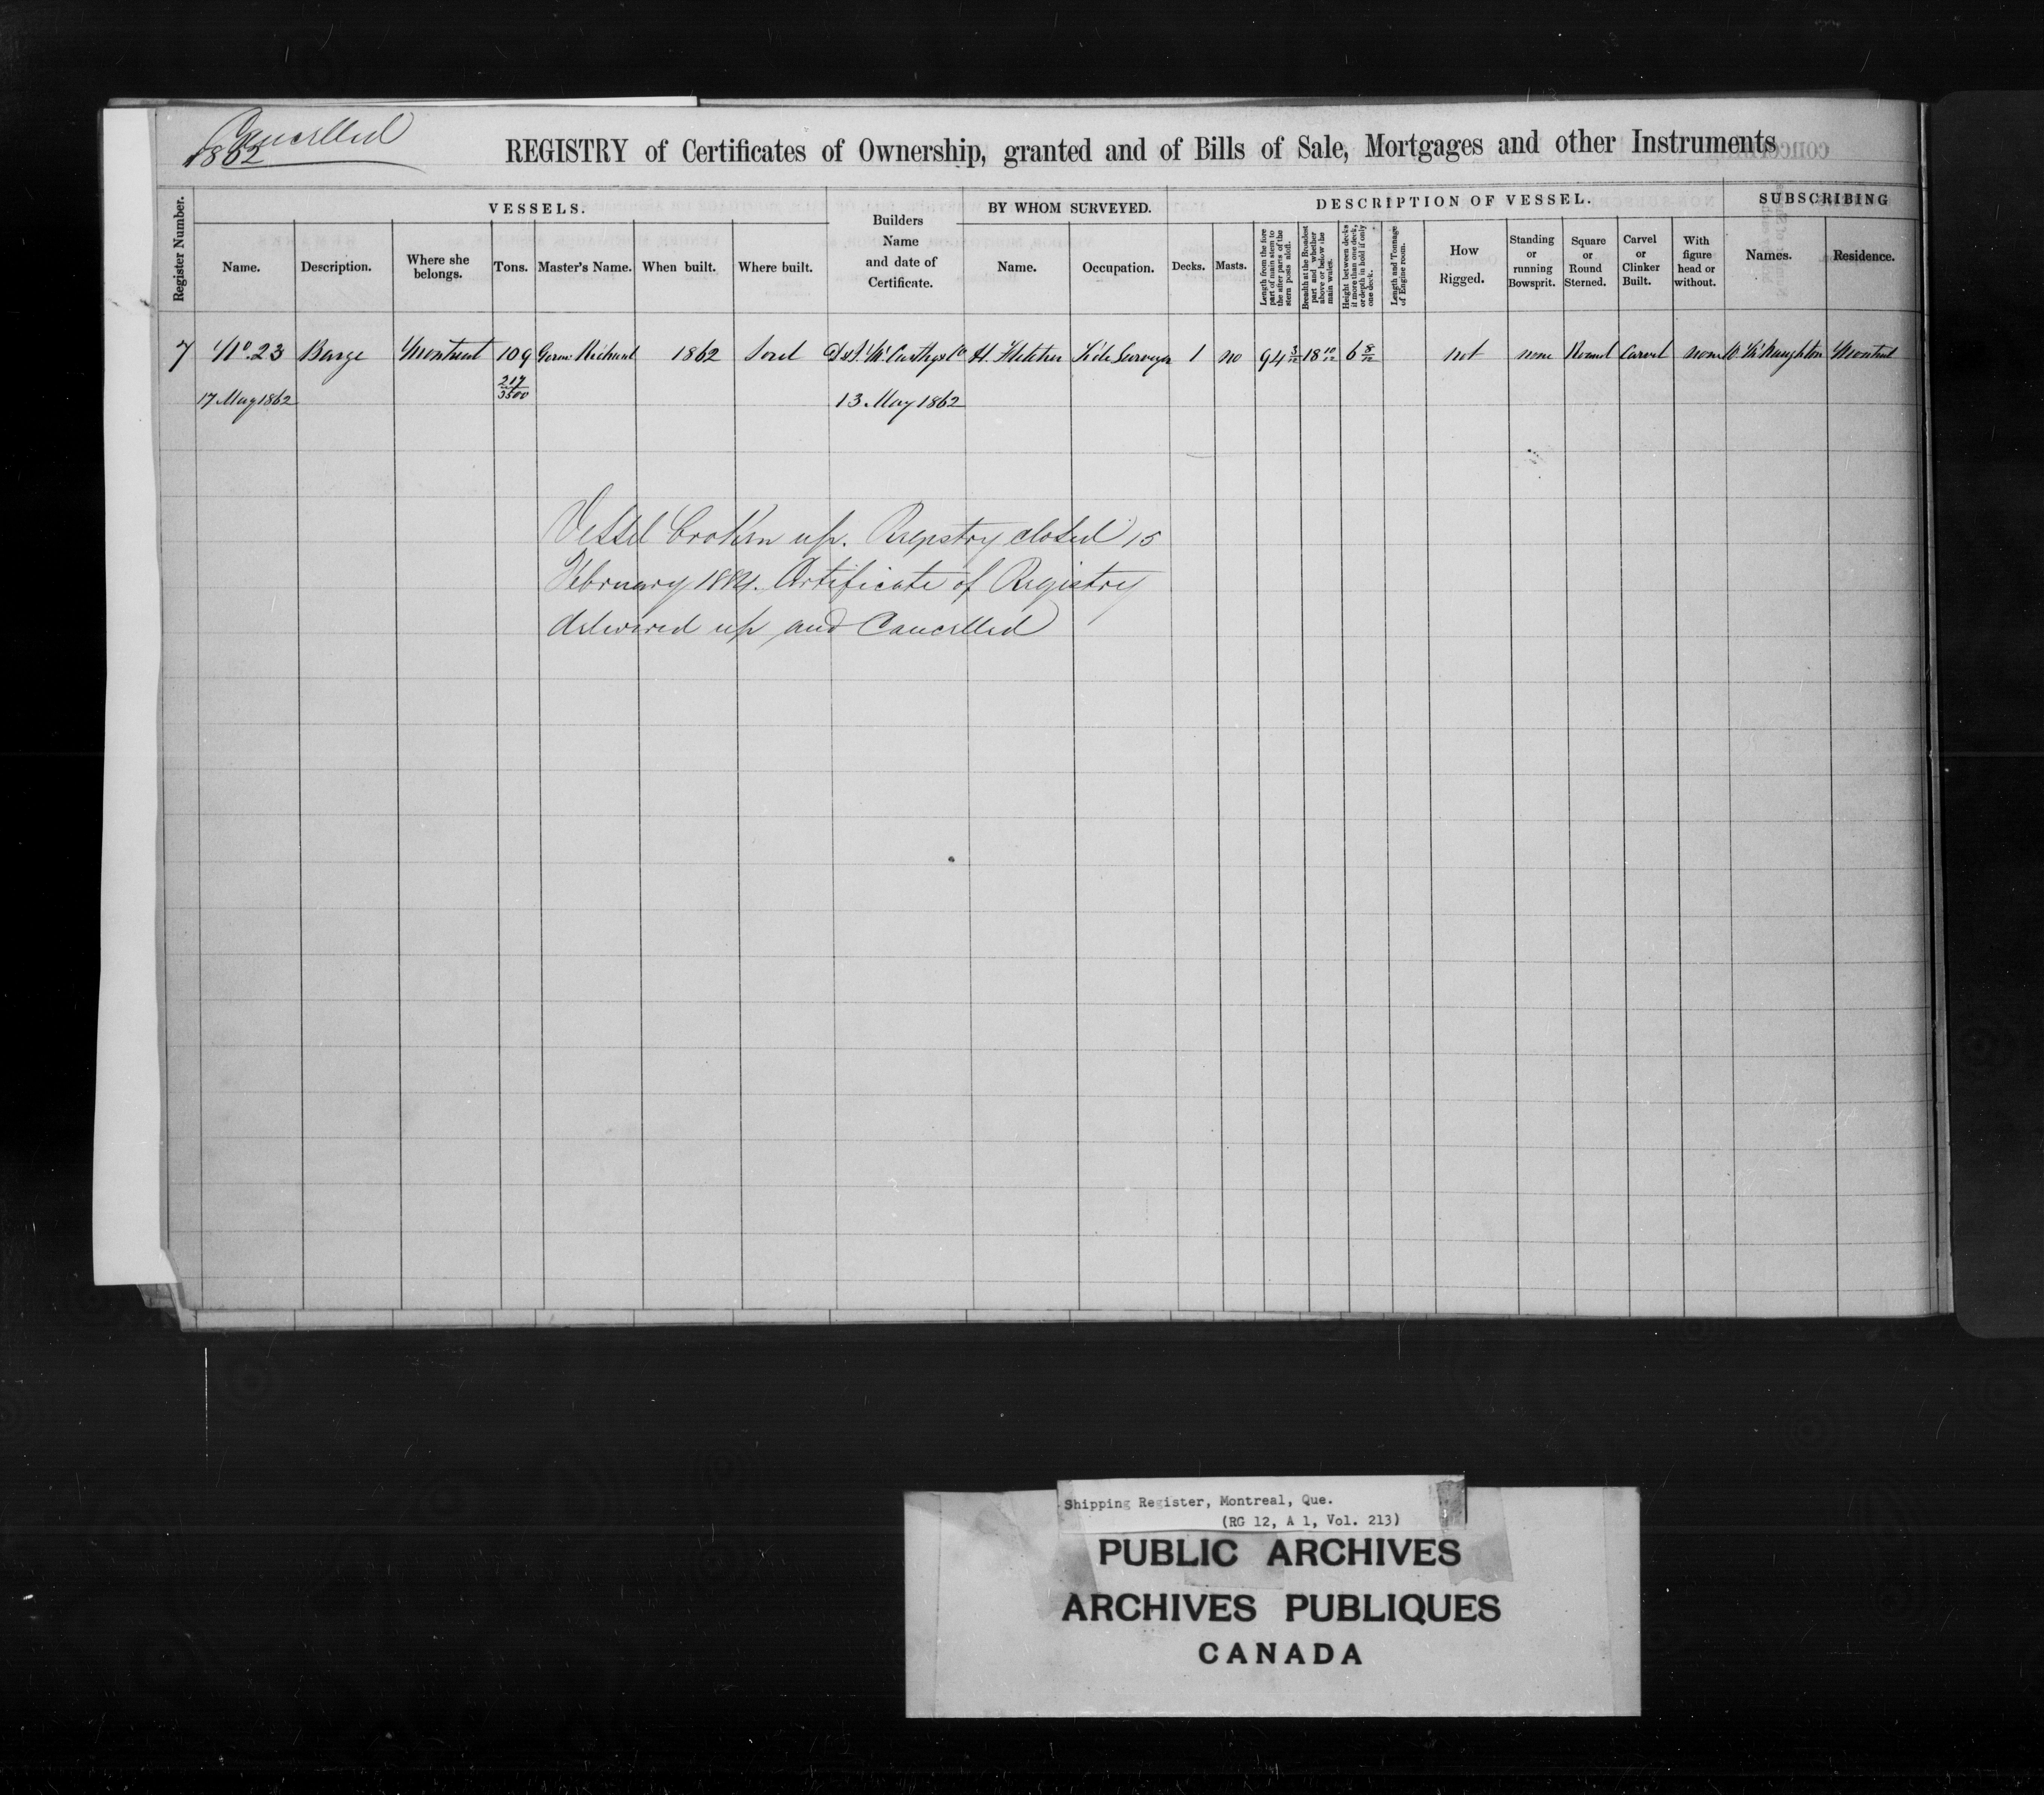 Cancelled
1862
REGISTRY of Certificates of Ownership, granted and of Bills of Sale, Mortgages and other Instruments
Register Number.
VESSELS.
Name.
Description.
Where she belongs.
Tons.
Master's Name.
When built.
Where built.
Builders Name and date of Certificate.
BY WHOM SURVEYED.
Name.
Occupation.
DESCRIPTION OF VESSEL.
Decks.
Masts.
Length from the fore part of main stem to the after parts of the stern posts aloft.
Breadth at the Broadest part and whether above or below the main wales.
Height between decks if more than one deck, or depth in hold if only one deck.
Length and Tonnage of Engine room.
How Rigged.
Standing or running Bowsprit.
Square or Round Sterned.
Carvel or Clinker Built.
With figure head or without.
SUBSCRIBING
Names.
Residence.
7 No. 23 Barge Montreal 109 Richard 1862 Sorel D & J. McCarthy & Co H. Fletcher Tide Surveyor 1 no 94 3/12 18 10/12 6 8/12 not none Round Carvel none W. McNaughton Montreal
17 May 1862 217/3500 13 May 1862
Vessel broken up. Registry closed 15
February 1884. Certificate of Registry
delivered up and Cancelled
Shipping Register, Montreal, Que.
(RG 12, A 1, Vol. 213)
PUBLIC ARCHIVES
ARCHIVES PUBLIQUES
CANADA